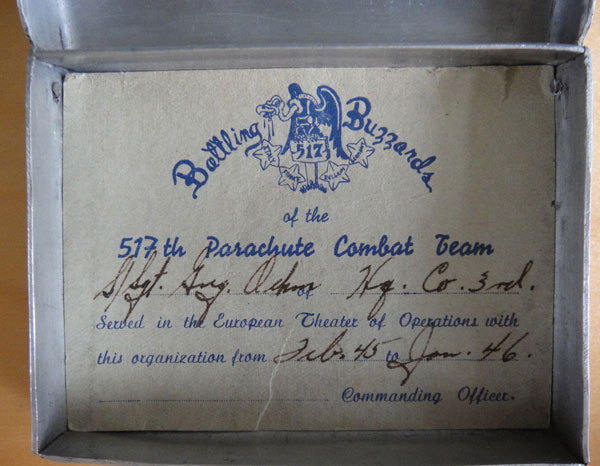 Battling Buzzards
517
of the
517th Parachute Combat Team
S/Sgt. Ohm of Hq. Co. 3rd.
Served in the European Theater of Operations with
this organization from Feb. 45 to Jan. 46.
Commanding Officer.